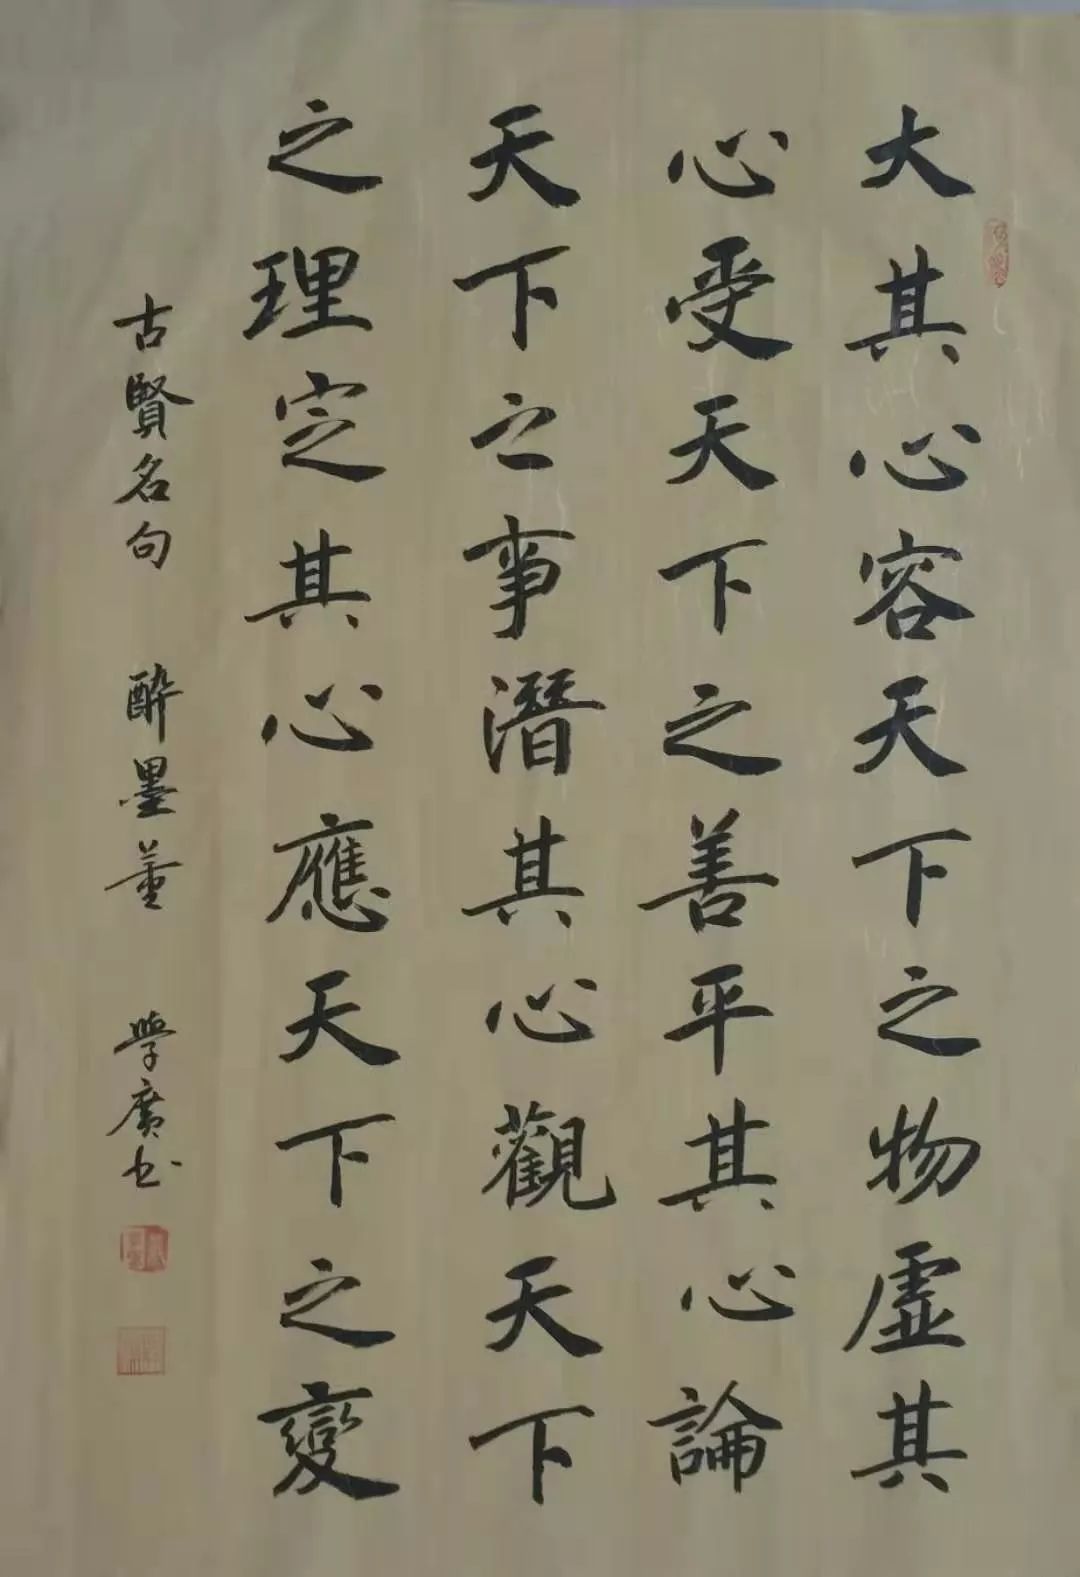 大其心容天下之物虛其
心受天下之善平其心論
天下之事潛其心觀天下
之理定其心應天下之變
古賢名句 醉墨董 學廣书